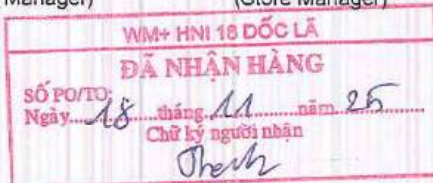 Manager) (Store Manager)
WM+ HNI 18 DỐC LÃ
ĐÃ NHẬN HÀNG
SỐ PO/TO:
Ngày 18 tháng 11 năm 25
Chữ ký người nhận